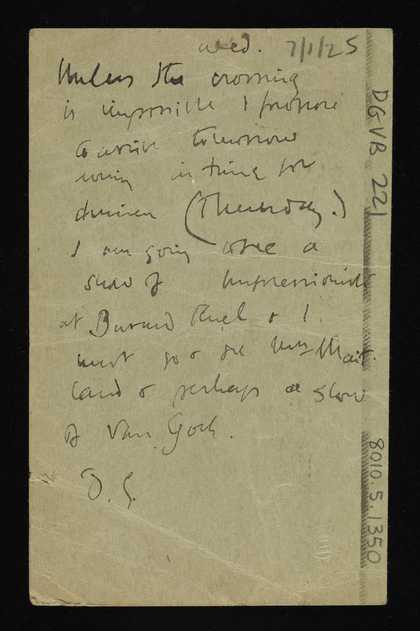 wed. 7/1/25
Unless the crossing
is impossible I propose
to arrive tomorrow
in time for
dinner (Thursday.)
I am going to see a
show of Impressionists
at Durand Ruel &
must go & see Miss Mait
land & perhaps a show
of Van Gogh.
D. G.
DGVB 221
8010.5.1350